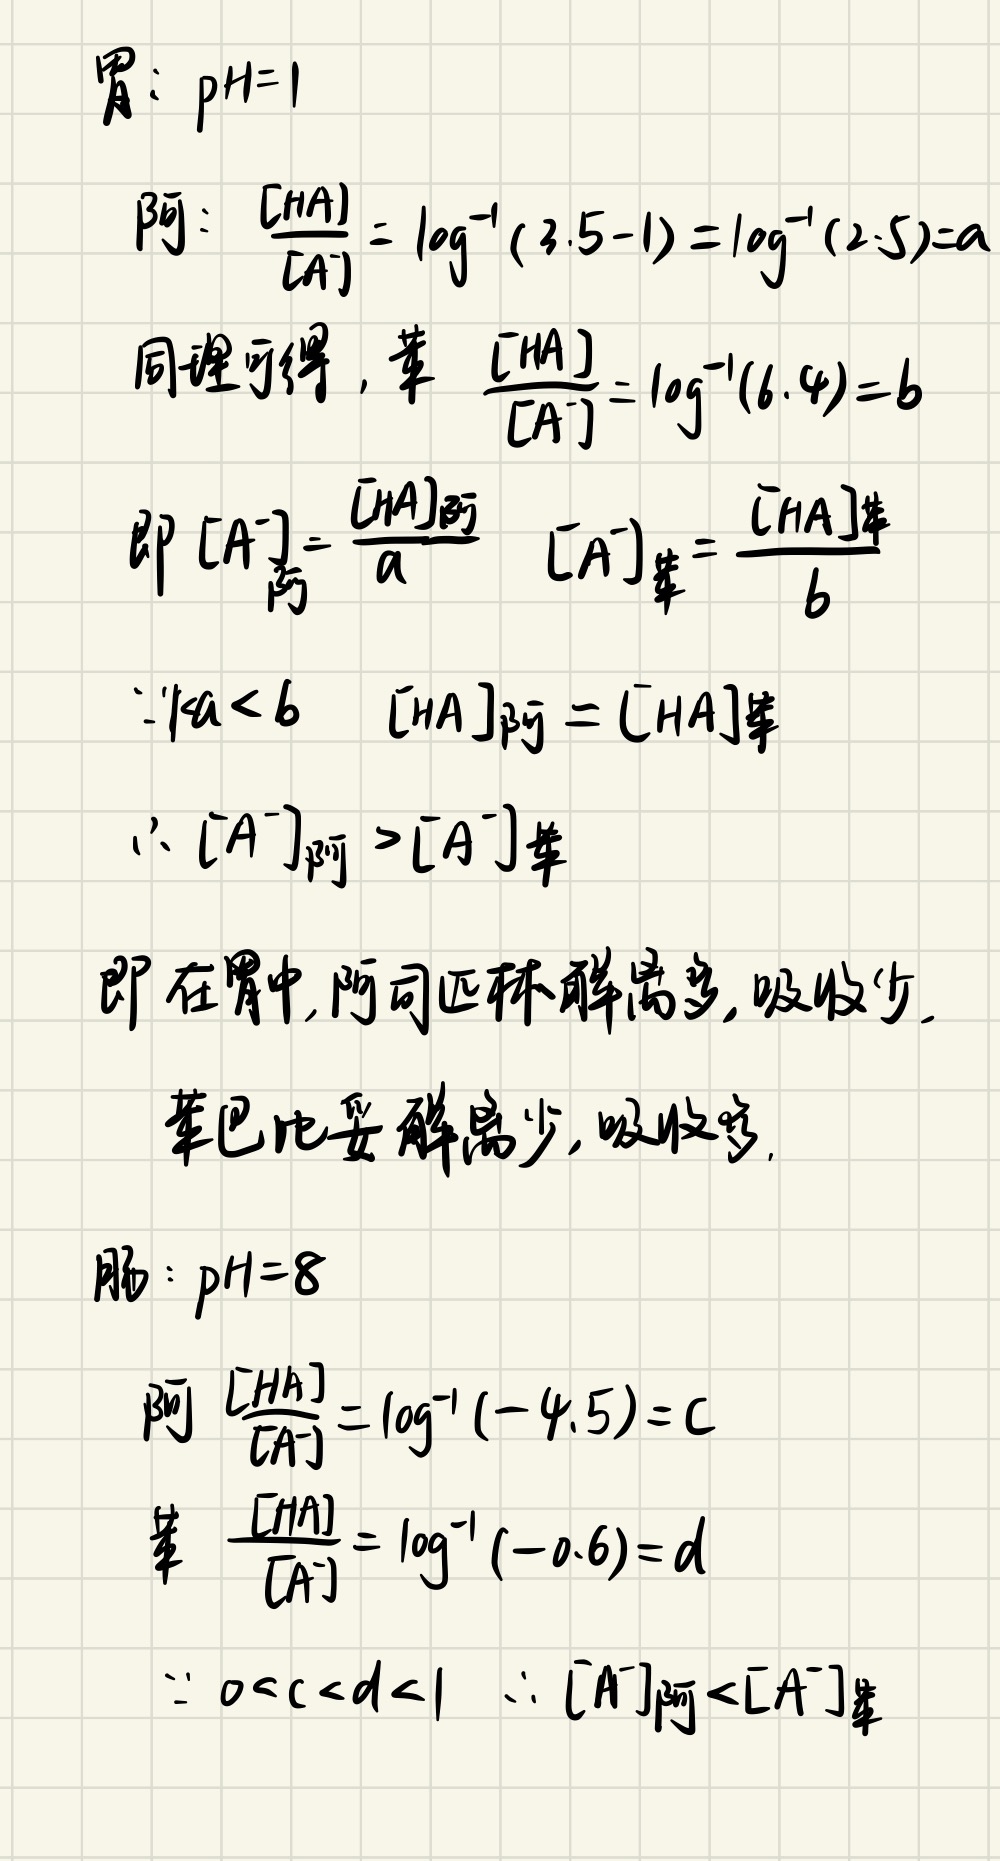 胃: pH=1
阿: [HA]/[A⁻] = log⁻¹(3.5-1) = log⁻¹(2.5)=a
同理可得, 苯 [HA]/[A⁻] = log⁻¹(6.4)=b
即 [A⁻]阿 = [HA]阿/a [A⁻]苯 = [HA]苯/b
∵1<a<b [HA]阿 = [HA]苯
∴ [A⁻]阿 > [A⁻]苯
即在胃中, 阿司匹林解离多, 吸收少.
苯巴比妥解离少, 吸收多.
肠: pH=8
阿 [HA]/[A⁻] = log⁻¹(-4.5)=c
苯 [HA]/[A⁻] = log⁻¹(-0.6)=d
∵ 0<c<d<1 ∴ [A⁻]阿<[A⁻]苯